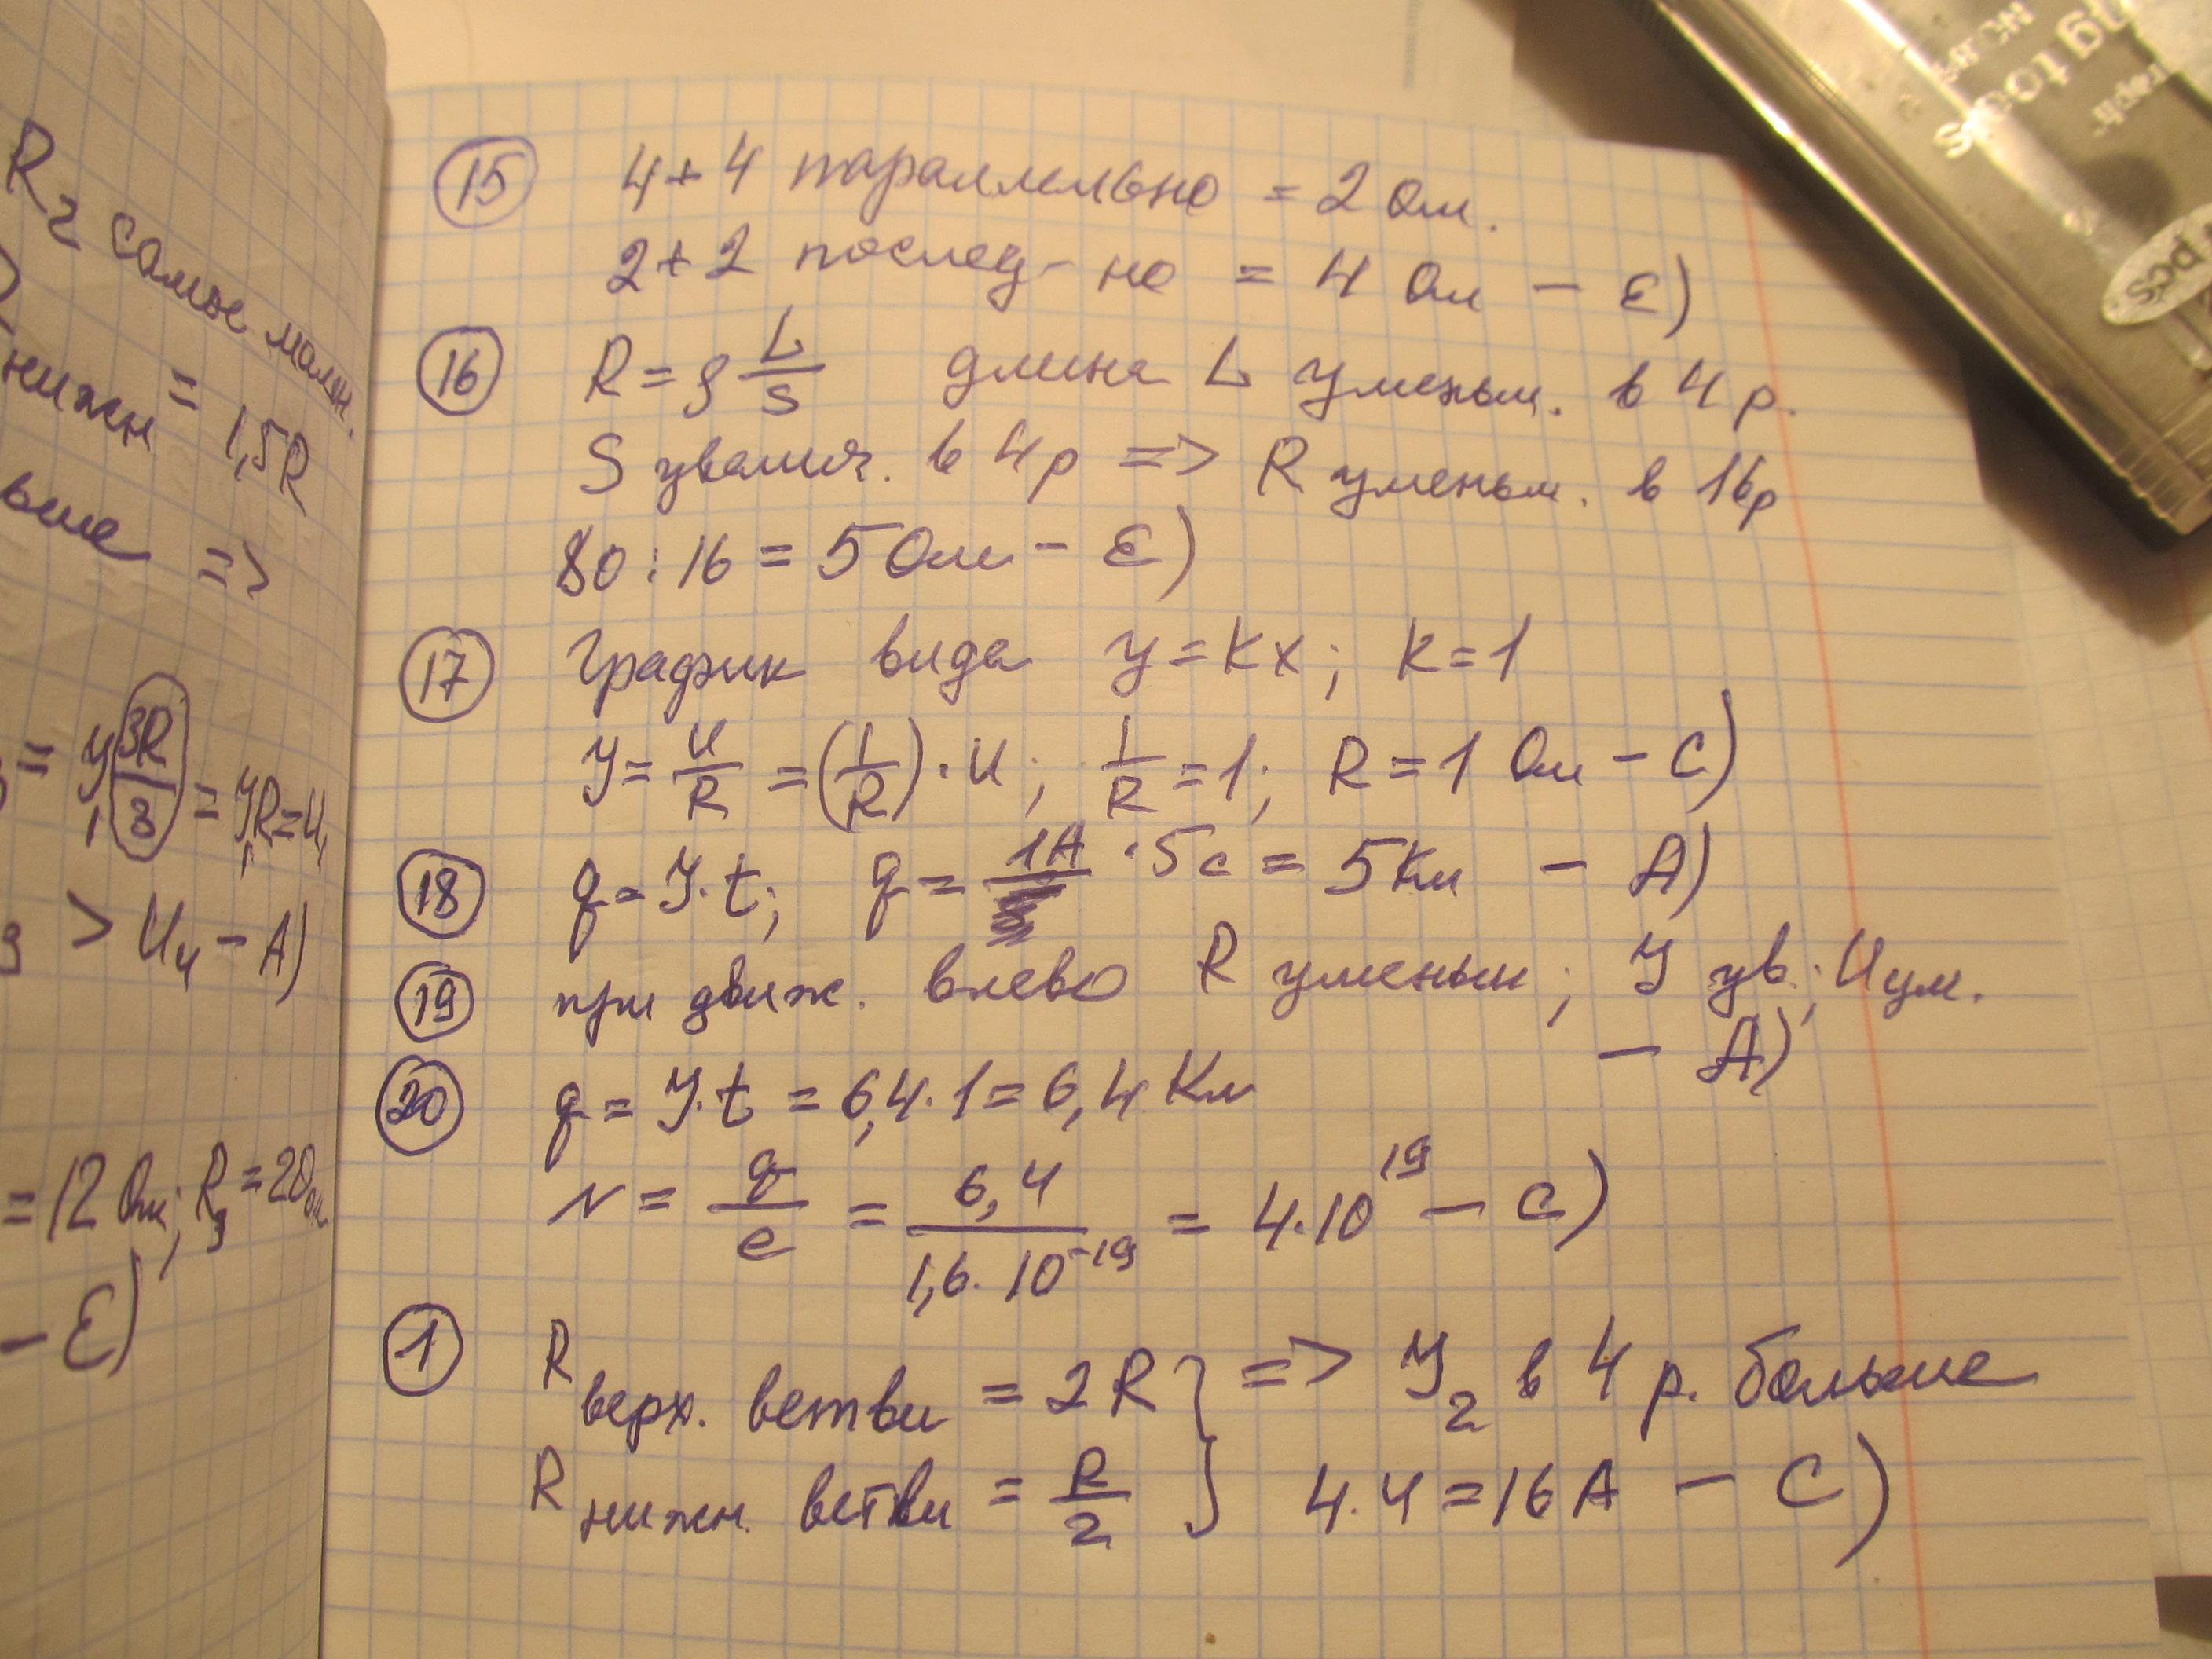 R₂ самое мален.
нижн = 1,5R
ьше =>
= У₁ 3R/3 = У₁R = U₁
3 > U4 - А)
= 12 Ом; R₃ = 20 Ом
- Е)
15 4+4 параллельно = 2 Ом.
2+2 послед-но = 4 Ом - Е)
16 R = ρ L/S длина L уменьш. в 4 р.
S увелич. в 4 р => R уменьш. в 16 р
80 : 16 = 5 Ом - Е)
17 График вида y = kx; k = 1
У = U/R = (1/R) · U; 1/R = 1; R = 1 Ом - С)
18 q = У·t; q = 1А · 5с = 5 Кл - А)
19 при движ. влево R уменьш; У ув.; U ум.
- А)
20 q = У·t = 6,4·1 = 6,4 Кл
N = q/e = 6,4/1,6·10⁻¹⁹ = 4·10¹⁹ - С)
1 R верх. ветви = 2R } => У₂ в 4 р. больше
R нижн. ветви = R/2 } 4·4 = 16А - С)
ng to
oops
pcs